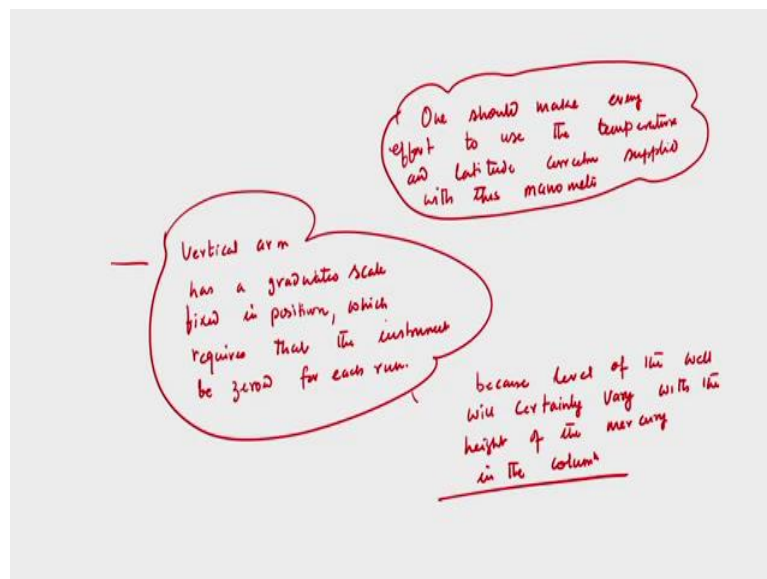 One should make every
effort to use the temperature
and latitude correctn supplied
with this manometer
Vertical arm
has a graduated scale
fixed in position, which
requires that the instrument
be zeroed for each run.
because level of the well
will certainly vary with the
height of the mercury
in the column